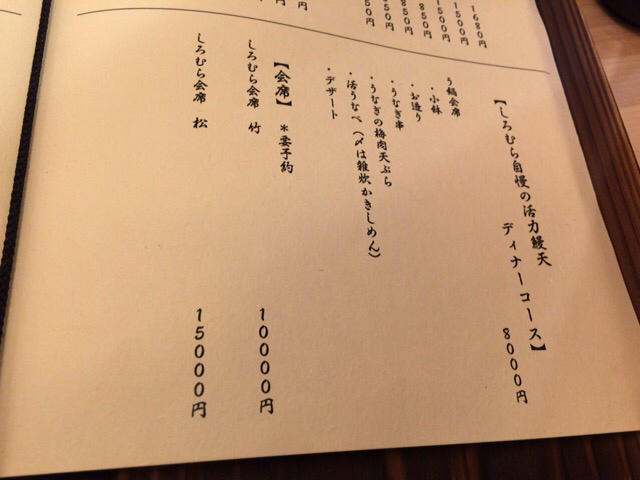 1680円
1500円
1500円
850円
850円
【しろむら自慢の活力鰻天 ディナーコース】 8000円
う鍋会席
・小鉢
・お造り
・うなぎ串
・うなぎの梅肉天ぷら
・活うなべ(〆は雑炊かきしめん)
・デザート
【会席】 *要予約
しろむら会席 竹 10000円
しろむら会席 松 15000円